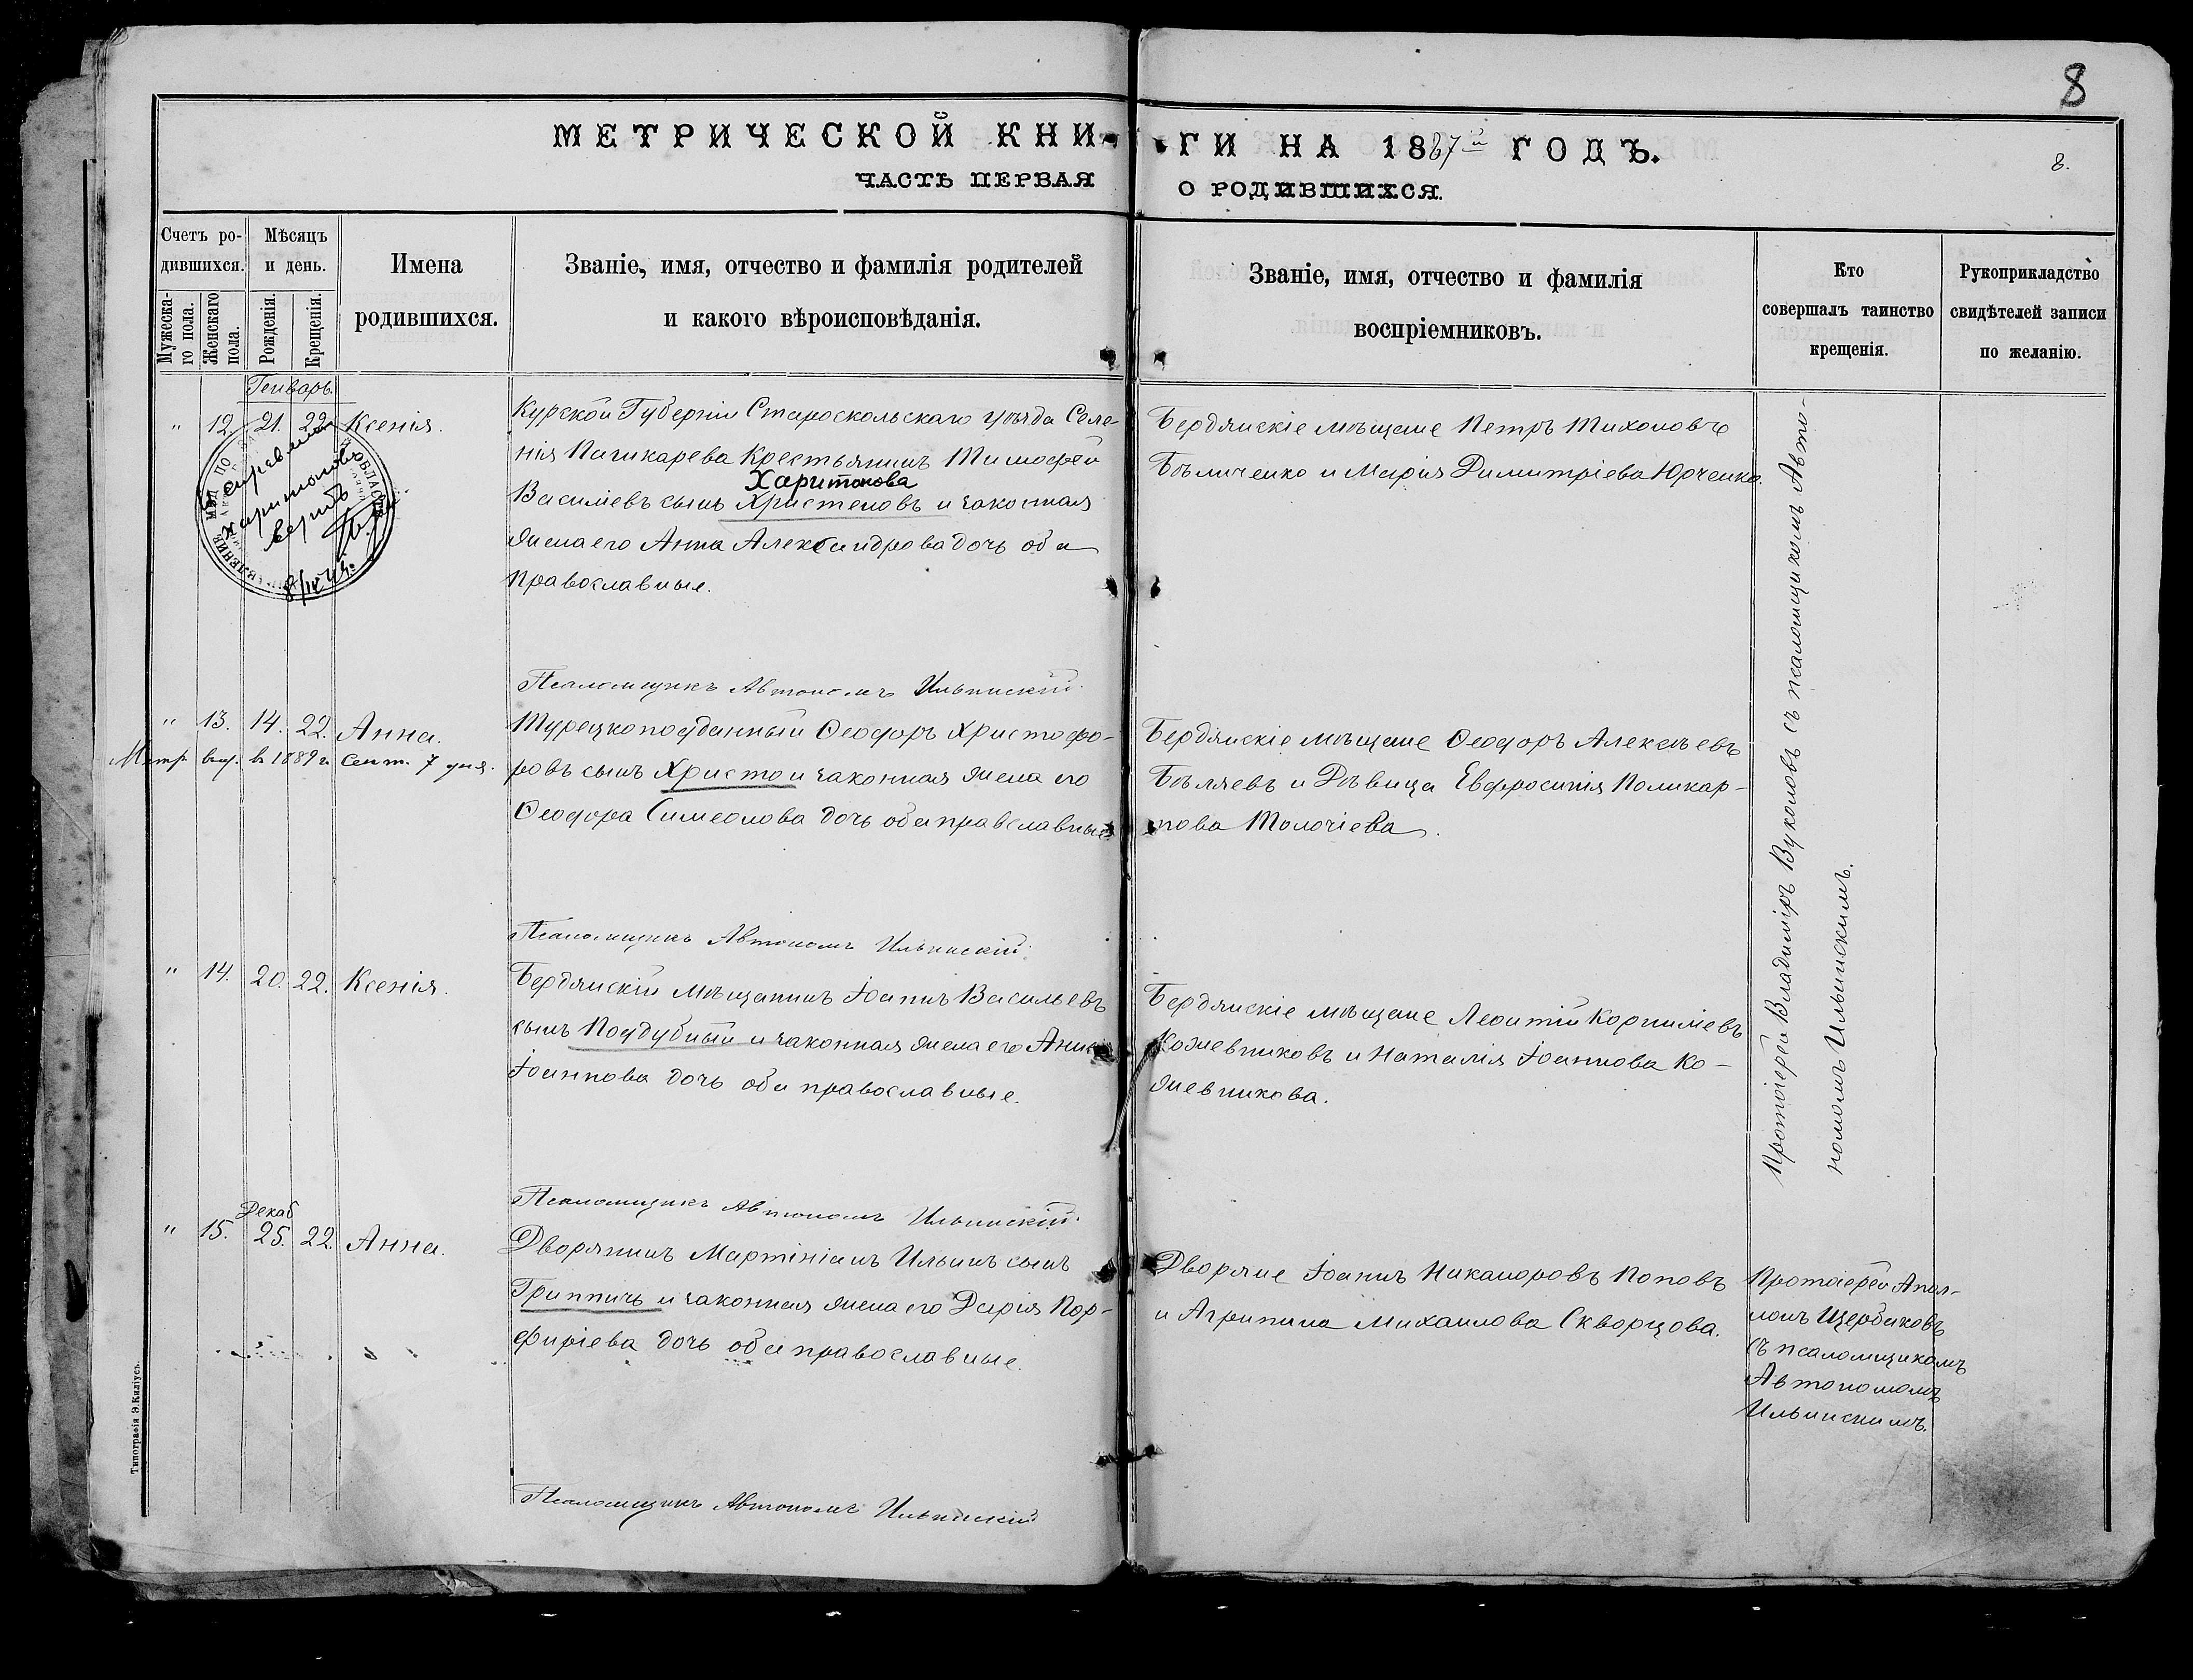 8
МЕТРИЧЕСКОЙ КНИ-
ГИ НА 1887й ГОДЪ.
8.
ЧАСТЬ ПЕРВАЯ
О РОДИВШИХСЯ.
Счетъ ро-
дившихся.
Мужеска-
го пола.
Женскаго
пола.
Мѣсяцъ
и день.
Рожденія.
Крещенія.
Имена
родившихся.
Званіе, имя, отчество и фамилія родителей
и какого вѣроисповѣданія.
Званіе, имя, отчество и фамилія
воспріемниковъ.
Кто
совершалъ таинство
крещенія.
Рукоприкладство
свидѣтелей записи
по желанію.
Генварь.
" 12. 21. 22. Ксенія.
Курской Губерніи Староскольскаго уѣзда Селе-
нія Крестьянинъ Тимофей
Харитонова
Василіевъ сынъ Христеновъ и законная
жена его Анна Александрова дочь оба
православные.
Бердянскіе мѣщане Петръ Тихоновъ
Бѣличенко и Марія Димитріева Юрченко.
Харитонова
верить
Псаломщикъ Автономъ Ильинскій.
" 13. 14. 22. Анна.
Метр. выд. въ 1889 г. Сент. 7 дня.
Турецкоподданный Ѳеодоръ Христофо-
ровъ сынъ Христо и законная жена его
Ѳеодора Симеонова дочь оба православные
Бердянскіе мѣщане Ѳеодоръ Алексѣевъ
Бѣляевъ и Дѣвица Евфросинія Поликар-
пова Толочіева.
Псаломщикъ Автономъ Ильинскій.
" 14. 20. 22. Ксенія.
Бердянскій мѣщанинъ Іоаннъ Васильевъ
сынъ Поддубный и законная жена его Анна
Іоаннова дочь оба православные.
Бердянскіе мѣщане Леонтій Корниліевъ
Кожевниковъ и Наталія Іоаннова Ко-
жевникова.
Протоіерей Владиміръ Вуколовъ съ псаломщикомъ Авто-
номомъ Ильинскимъ.
Псаломщикъ Автономъ Ильинскій.
Декаб
" 15. 25. 22. Анна.
Дворянинъ Мартініанъ Ильинъ сынъ
Гриппичъ и законная жена его Дарія Пор-
фиріева дочь оба православные.
Дворяне Іоаннъ Никаноровъ Поповъ
и Агрипина Михаилова Скворцова.
Протоіерей Апол-
лонъ Щербаковъ
съ псаломщикомъ
Автономомъ
Ильинскимъ.
Псаломщикъ Автономъ Ильинскій
Типографія Э. Киліусъ.